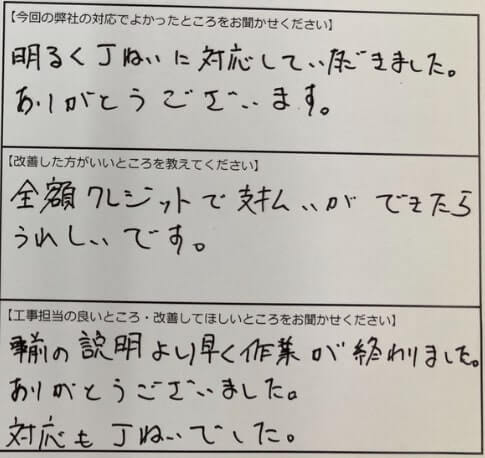 【今回の弊社の対応でよかったところをお聞かせください】
明るく丁ねいに対応していただきました。
ありがとうございます。
【改善した方がいいところを教えてください】
全額クレジットで支払いができたら
うれしいです。
【工事担当の良いところ・改善してほしいところをお聞かせください】
事前の説明より早く作業が終わりました。
ありがとうございました。
対応も丁ねいでした。